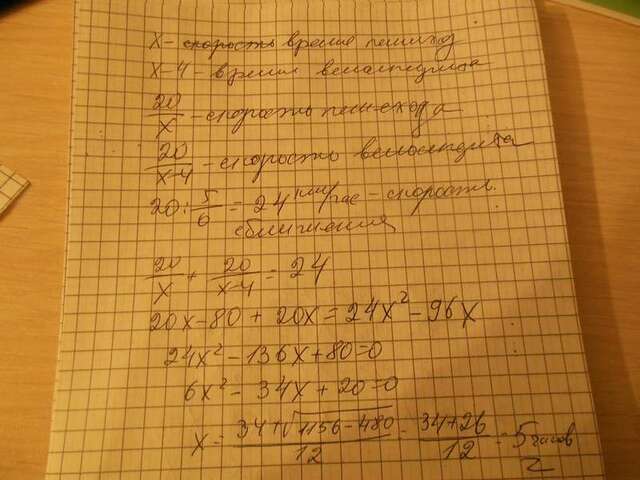 x - скорость время пешход
x-4 - время велосипедиста
20/x - скорость пешехода
20/(x-4) - скорость велосипедиста
20 : 5/6 = 24 км/час - скорость
сближения
20/x + 20/(x-4) = 24
20x - 80 + 20x = 24x² - 96x
24x² - 136x + 80 = 0
6x² - 34x + 20 = 0
x = (34+√1156-480)/12 = (34+26)/12 = 5 часов